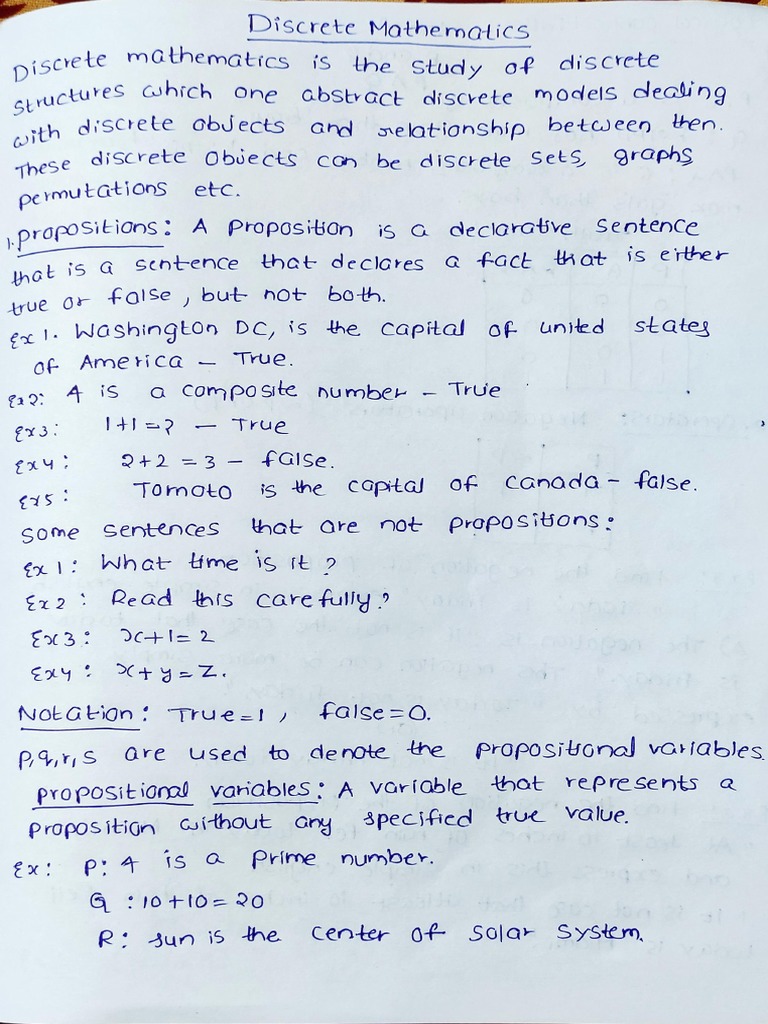 Discrete Mathematics
Discrete mathematics is the study of discrete
structures which one abstract discrete models dealing
with discrete objects and relationship between then.
These discrete Objects can be discrete sets, graphs
permutations etc.
1. propositions: A Proposition is a declarative sentence
that is a sentence that declares a fact that is either
true or false, but not both.
Ex 1. Washington DC, is the capital of united states
of America – True.
Ex2: 4 is a composite number – True
Ex3: 1+1=? – True
Ex4: 2+2 = 3 – false.
Ex5: Tomoto is the capital of Canada – false.
some sentences that are not propositions:
Ex 1: What time is it?
Ex2: Read this carefully?
Ex3: x+1=2
Ex4: x+y=Z.
Notation: True=1, false=0.
P,q,r,s are used to denote the propositional variables.
propositional variables: A variable that represents a
proposition without any specified true value.
Ex: P: 4 is a Prime number.
Q: 10+10=20
R: sun is the center of solar system.